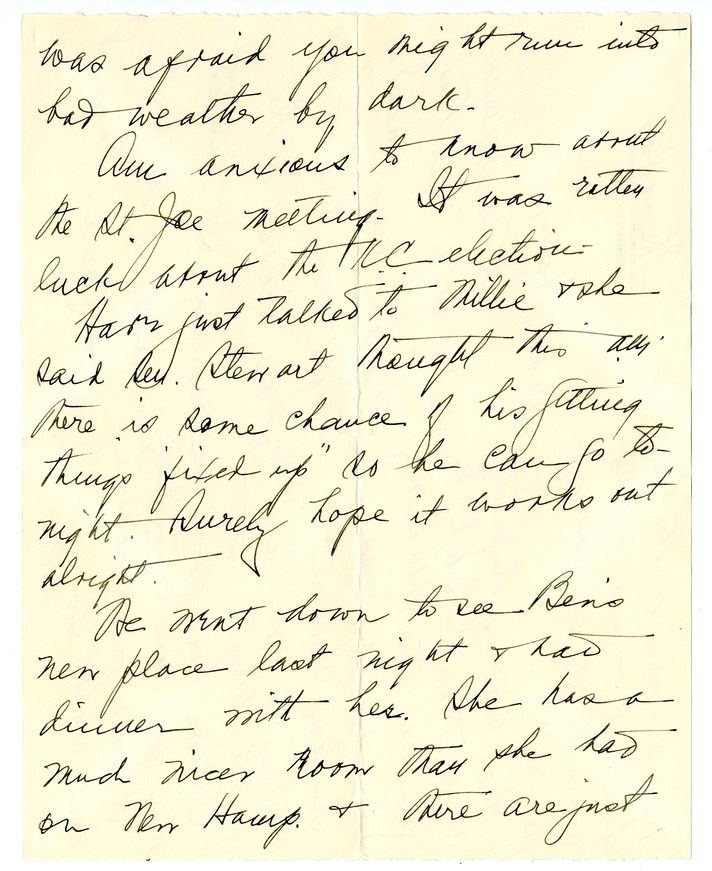 was afraid you might run into
bad weather by dark.
Am anxious to know about
the St. Joe meeting. It was rotten
luck about the K.C. election.
Have just talked to Millie & she
said Sen. Stewart thought this a.m.
there is some chance of his getting
things "fixed up" so he can go to-
night. Surely hope it works out
alright.
We went down to see Ben's
new place last night & had
dinner with her. She has a
much nicer room than she had
on New Hamp. & there are just